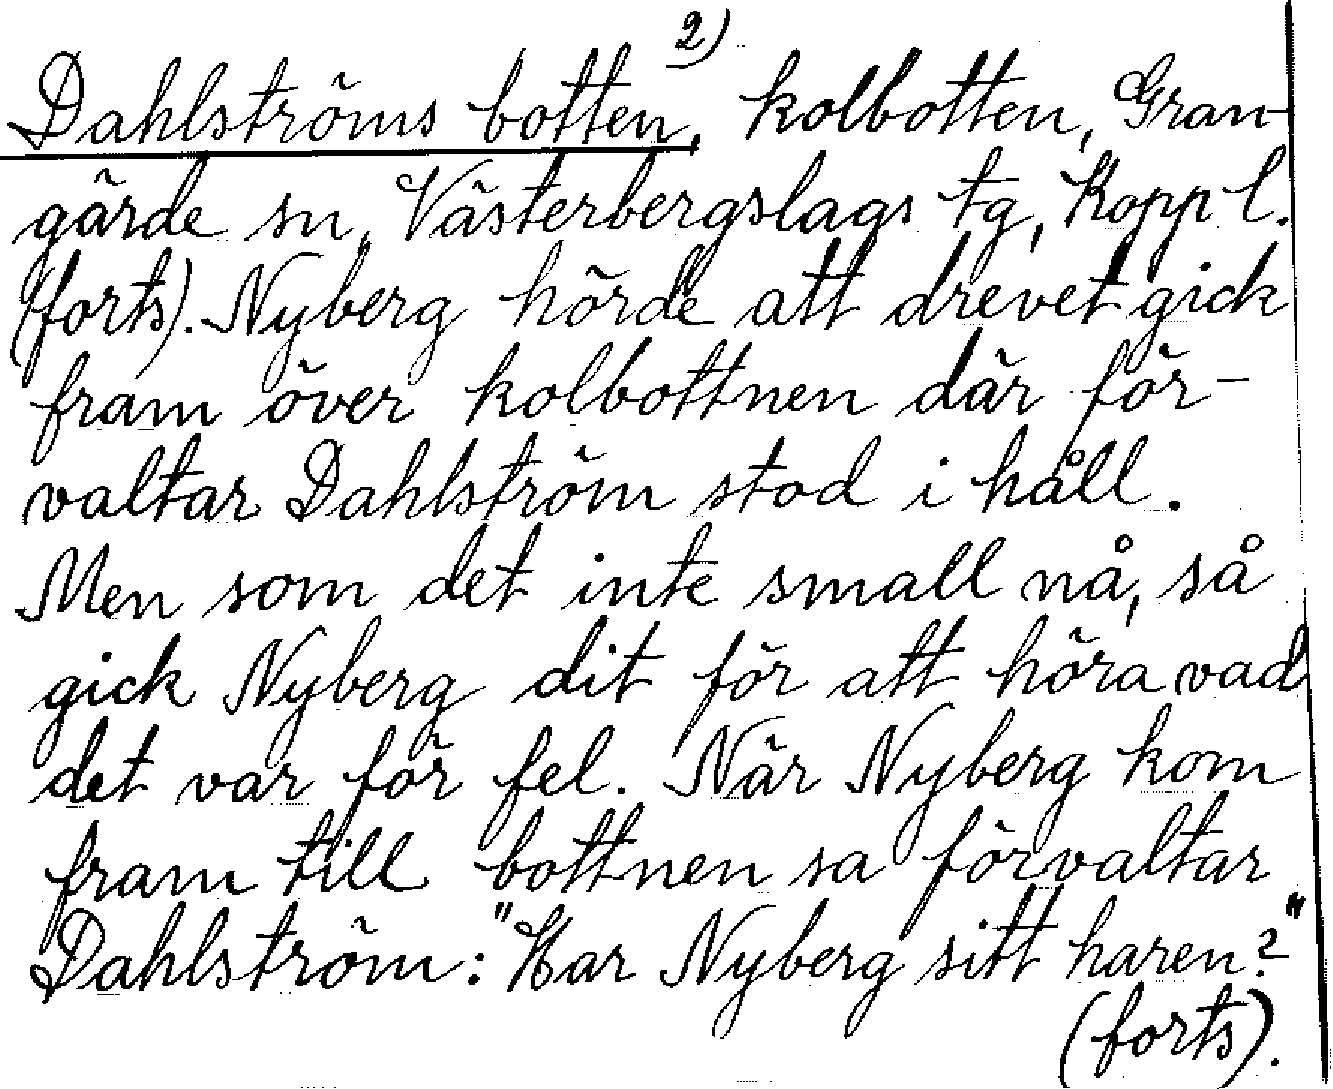 2)
Dahlströms botten, kolbotten, Gran-
gärde sn, Västerbergslags tg, Kopp l.
(forts). Nyberg hörde att drevet gick
fram över kolbottnen där för-
valtar Dahlström stod i håll.
Men som det inte small nå, så
gick Nyberg dit för att höra vad
det var för fel. När Nyberg kom
fram till bottnen sa förvaltar
Dahlström: "Har Nyberg sitt haren?"
(forts).